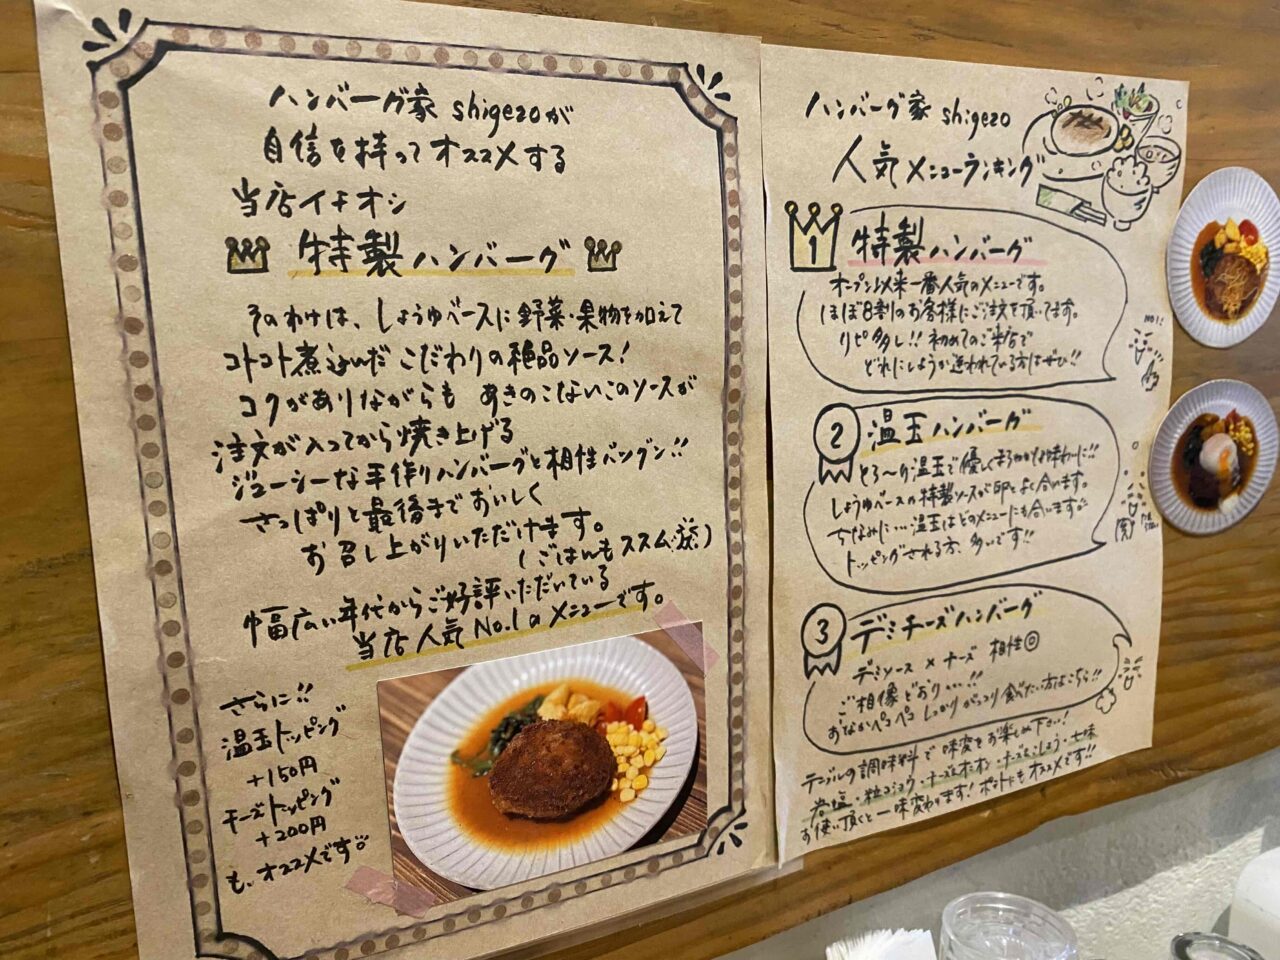 ハンバーグ家 shigezoが
自信を持ってオススメする
当店イチオシ
特製ハンバーグ
そのわけは、しょうゆベースに野菜・果物を加えて
コトコト煮込んだ こだわりの絶品ソース!
コクがありながらも あきのこないこのソースが
注文が入ってから焼き上げる
ジューシーな手作りハンバーグと相性バツグン!!
さっぱりと最後までおいしく
お召し上がりいただけます。
(ごはんもススム
幅広い年代からご好評いただいている
当店人気No.1のメニューです。
さらに!!
温玉トッピング
+150円
チーズトッピング
+200円
も、オススメです
ハンバーグ家 shigezo
人気メニューランキング
1 特製ハンバーグ
オープン以来一番人気のメニューです。
ほぼ8割のお客様にご注文を頂いてます。
リピ多し!! 初めてのご来店で
どれにしようか迷われている方はぜひ!!
2 温玉ハンバーグ
とろ〜り温玉で優しくまろやかな味わいに!!
しょうゆベースの特製ソースが卵とよく合います。
ちなみに…温玉はどのメニューにも合います
トッピングされる方、多いです!!
3 デミチーズハンバーグ
デミソース × チーズ 相性◎
ご想像どおり…!!
おなかペコペコ しっかりがっつり食べたい方はこちら!!
テーブルの調味料で味変をお楽しみ下さい!
岩塩・粒コショウ・
七味
お使い頂くと一味変わります! ポテトにもオススメです!!